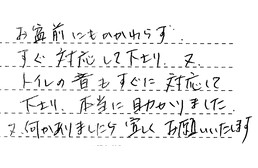 お盆前にもかかわらず、
すぐ対応して下さり、又、
トイレの音もすぐに対応して
下さり、本当に助かりました。
又何かありましたら宜しくお願いいたします